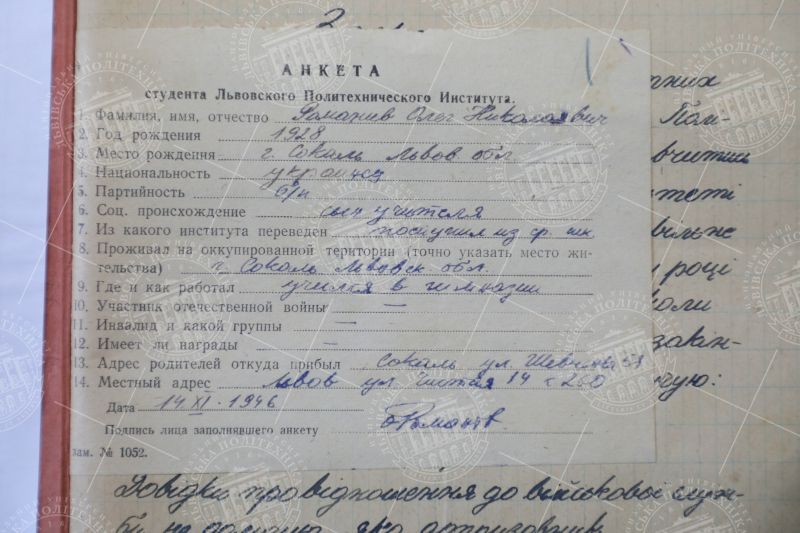 2
АНКЕТА
студента Львовского Политехнического Института.
1. Фамилия, имя, отчество Романив Олег Николаевич
2. Год рождения 1928
3. Место рождения г. Сокаль Львов. обл
4. Национальность украинец
5. Партийность б/п
6. Соц. происхождение сын учителя
7. Из какого института переведен поступил из ср. шк.
8. Проживал на оккупированной територии (точно указать место жи-
тельства) г. Сокаль Львовск. обл.
9. Где и как работал учился в гимназии
10. Участник отечественной войны —
11. Инвалид и какой группы —
12. Имеет ли награды —
13. Адрес родителей откуда прибыл Сокаль ул. Шевченка
14. Местный адрес Львов ул. 14
Дата 14 XI. 1946
Подпись лица заполнявшего анкету
зам. № 1052.
вчитись
році
закін-
Довідки про відношення до військової служ-
би не